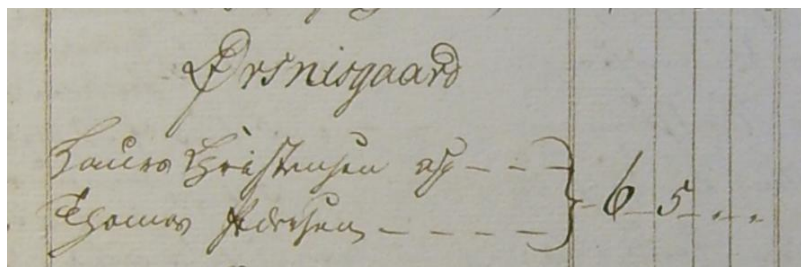 Ørsnisgaard
Laurs Christensen og - - -
Thomas Pedersen - - - - } - 6 - 5 - . - . -